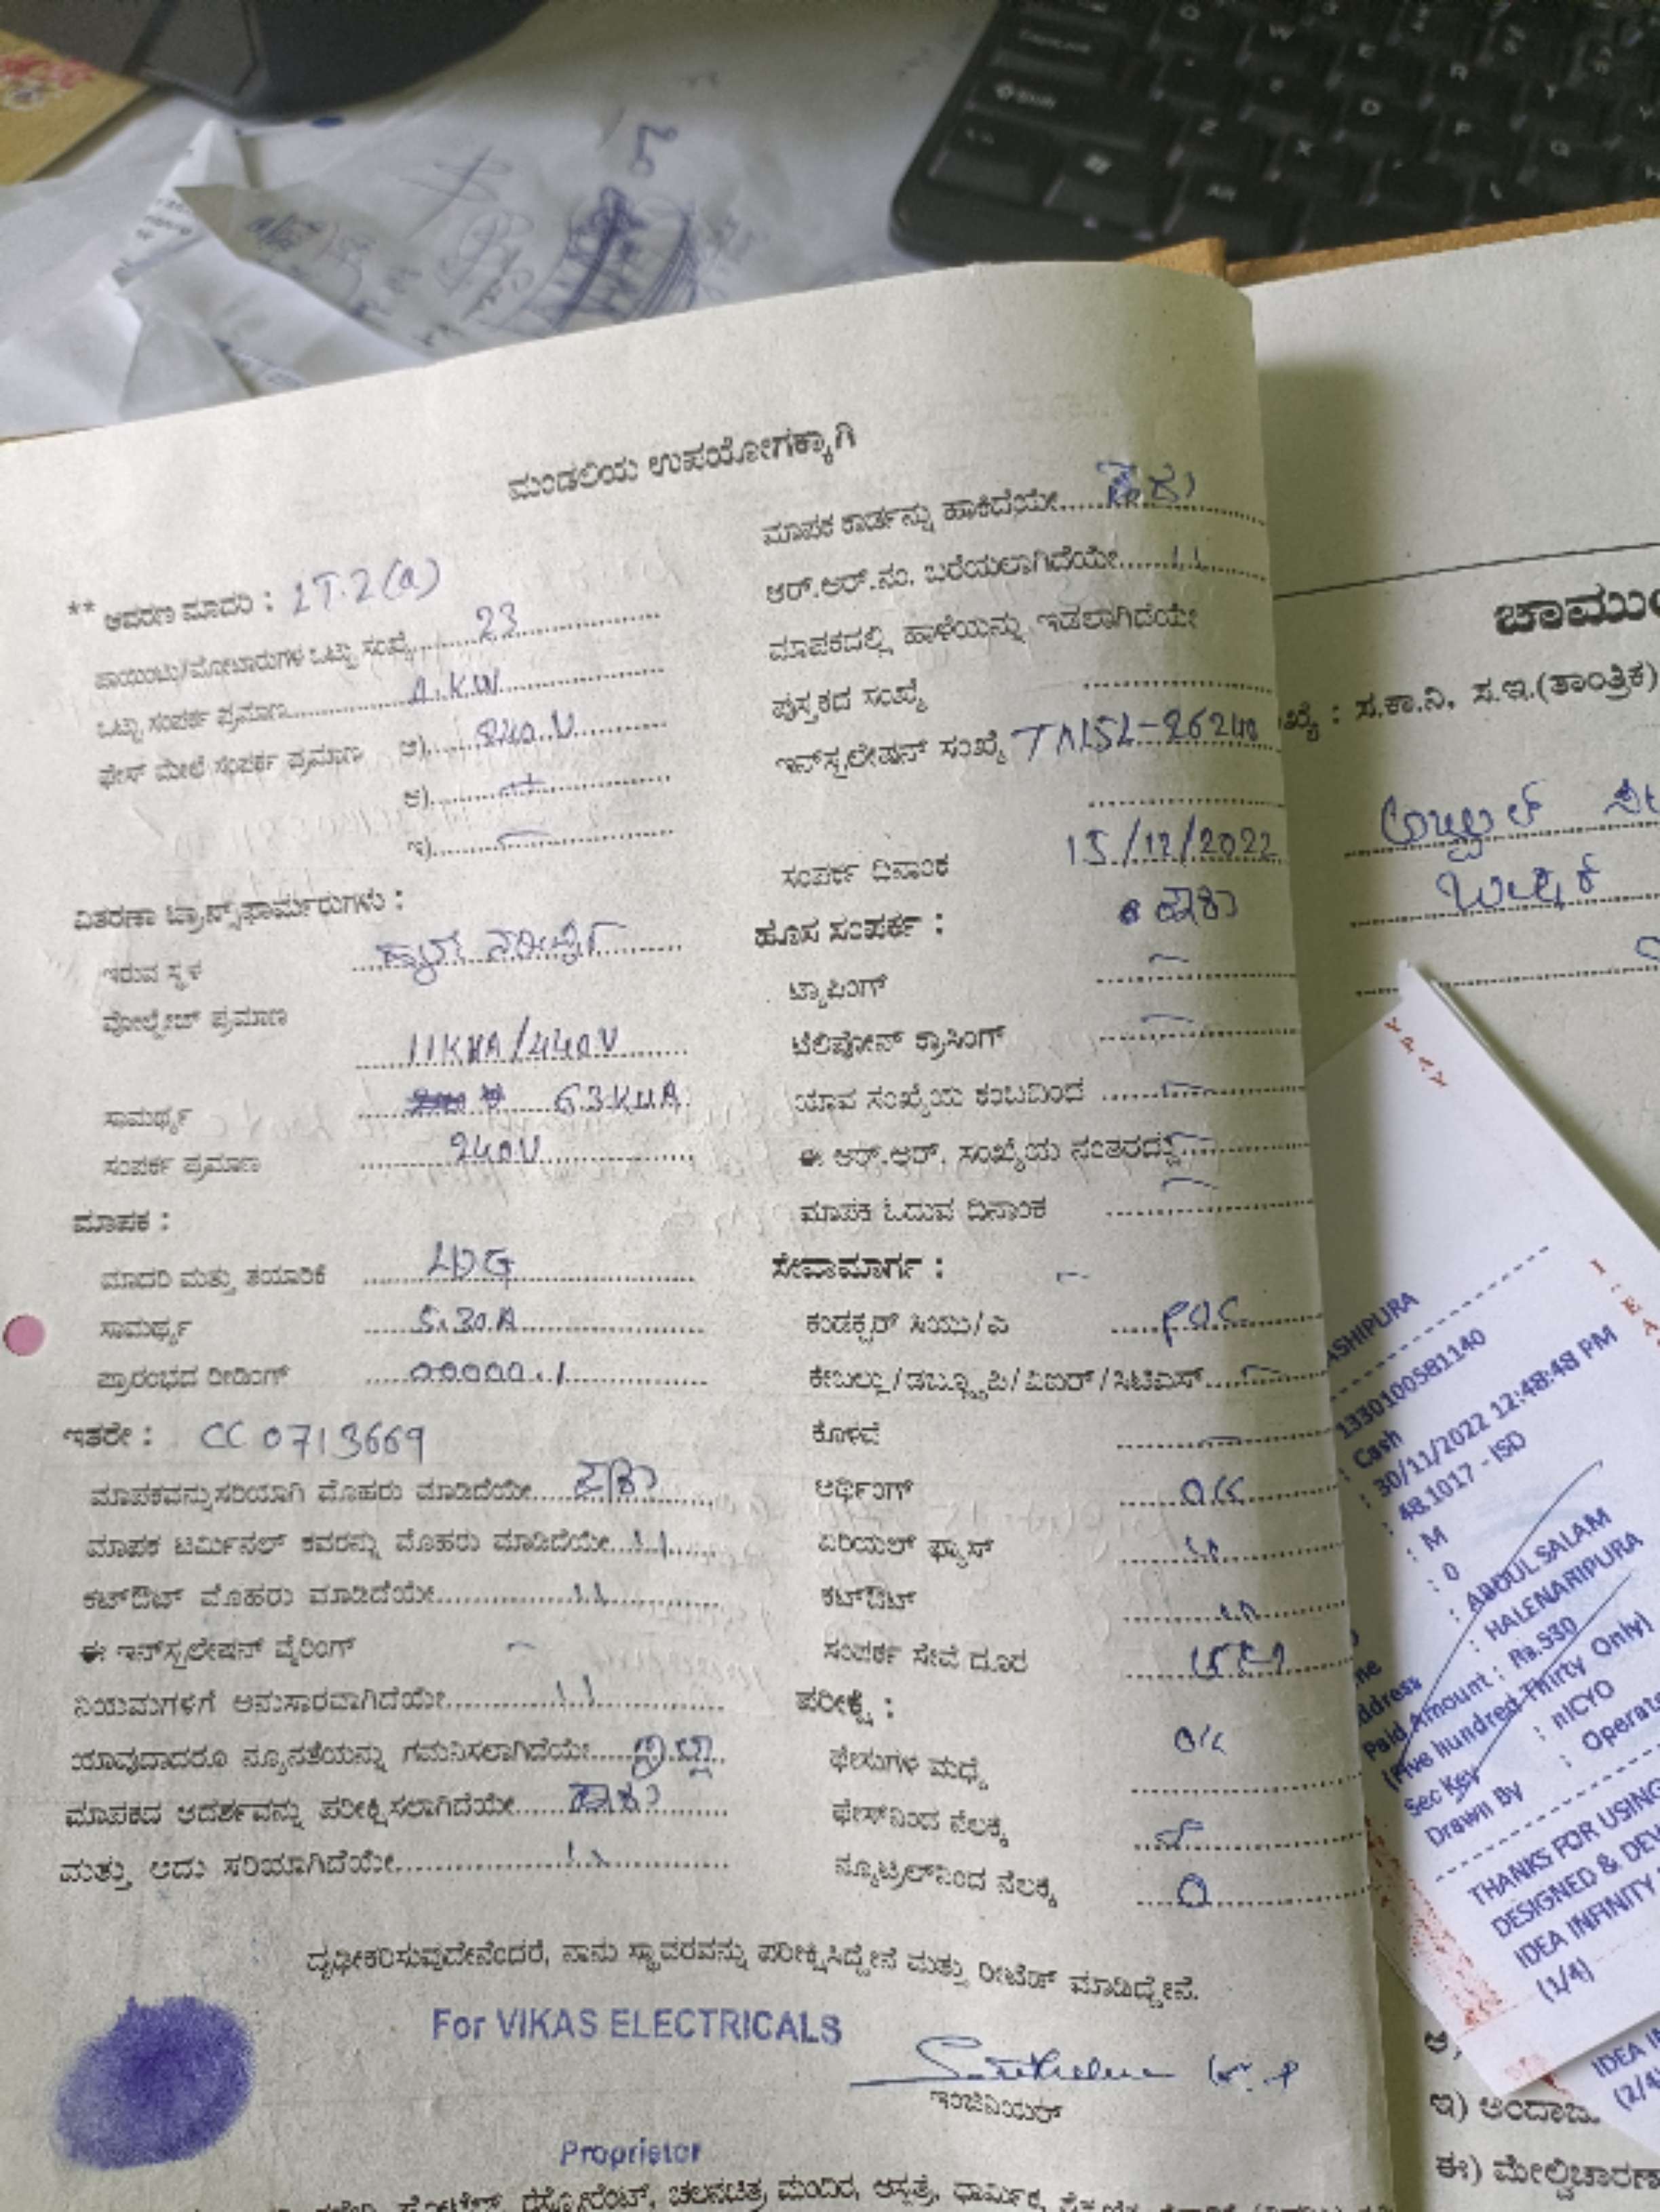 ಮಂಡಲಿಯ ಉಪಯೋಗಕ್ಕಾಗಿ
** ಆವರಣ ಮಾದರಿ : LT.2(a)
ಪಾಯಿಂಟು/ಮೋಟಾರುಗಳ ಒಟ್ಟು ಸಂಖ್ಯೆ 23
ಒಟ್ಟು ಸಂಪರ್ಕ ಪ್ರಮಾಣ KW
ಫೇಸ್ ಮೇಲೆ ಸಂಪರ್ಕ ಪ್ರಮಾಣ ಅ) 240 V
ಆ)
ಇ)
ವಿತರಣಾ ಟ್ರಾನ್ಸ್‌ಫಾರ್ಮರುಗಳು :
ಇರುವ ಸ್ಥಳ
ವೋಲ್ಟೇಜ್ ಪ್ರಮಾಣ
11KVA/440V
ಸಾಮರ್ಥ್ಯ 63KVA
ಸಂಪರ್ಕ ಪ್ರಮಾಣ 240V
ಮಾಪಕ :
ಮಾದರಿ ಮತ್ತು ತಯಾರಿಕೆ L&G
ಸಾಮರ್ಥ್ಯ 5.30A
ಪ್ರಾರಂಭದ ರೀಡಿಂಗ್ 00000.1
ಇತರೇ : CC 0713669
ಮಾಪಕವನ್ನು ಸರಿಯಾಗಿ ಮೊಹರು ಮಾಡಿದೆಯೇ ಹೌದು
ಮಾಪಕ ಟರ್ಮಿನಲ್ ಕವರನ್ನು ಮೊಹರು ಮಾಡಿದೆಯೇ ,,
ಕಟ್‌ಔಟ್ ಮೊಹರು ಮಾಡಿದೆಯೇ ,,
ಈ ಇನ್‌ಸ್ಟಲೇಷನ್ ವೈರಿಂಗ್
ನಿಯಮಗಳಿಗೆ ಅನುಸಾರವಾಗಿದೆಯೇ ,,
ಯಾವುದಾದರೂ ನ್ಯೂನತೆಯನ್ನು ಗಮನಿಸಲಾಗಿದೆಯೇ ಇಲ್ಲ
ಮಾಪಕದ ಆದರ್ಶವನ್ನು ಪರೀಕ್ಷಿಸಲಾಗಿದೆಯೇ ಹೌದು
ಮತ್ತು ಅದು ಸರಿಯಾಗಿದೆಯೇ ,,
ಮಾಪಕ ಕಾರ್ಡನ್ನು ಹಾಕಿದೆಯೇ ಹೌದು
ಆರ್.ಆರ್.ನಂ. ಬರೆಯಲಾಗಿದೆಯೇ ,,
ಮಾಪಕದಲ್ಲಿ ಹಾಳೆಯನ್ನು ಇಡಲಾಗಿದೆಯೇ
ಪುಸ್ತಕದ ಸಂಖ್ಯೆ
ಇನ್‌ಸ್ಟಲೇಷನ್ ಸಂಖ್ಯೆ
ಸಂಪರ್ಕ ದಿನಾಂಕ 15/12/2022
ಹೊಸ ಸಂಪರ್ಕ : ಹೌದು
ಟ್ಯಾಪಿಂಗ್
ಟೆಲಿಫೋನ್ ಕ್ರಾಸಿಂಗ್
ಯಾವ ಸಂಖ್ಯೆಯ ಕಂಬದಿಂದ
ಈ ಆರ್.ಆರ್. ಸಂಖ್ಯೆಯ ನಂತರದ್ದು
ಮಾಪಕ ಓದುವ ದಿನಾಂಕ
ಸೇವಾಮಾರ್ಗ :
ಕಂಡಕ್ಟರ್ ಸಿಯು/ಎ
ಕೇಬಲ್ಲು/ಡಬ್ಲ್ಯೂಪಿ/ವಿಐರ್/ಸಿಟಿಎಸ್
ಕೊಳವೆ
ಅರ್ಥಿಂಗ್ OK
ಏರಿಯಲ್ ಫ್ಯೂಸ್ ,,
ಕಟ್‌ಔಟ್ ,,
ಸಂಪರ್ಕ ಸೇವೆ ದೂರ
ಪರೀಕ್ಷೆ :
ಫೇಸುಗಳ ಮಧ್ಯೆ OK
ಫೇಸ್‌ನಿಂದ ನೆಲಕ್ಕೆ
ನ್ಯೂಟ್ರಲ್‌ನಿಂದ ನೆಲಕ್ಕೆ 0
ದೃಢೀಕರಿಸುವುದೇನೆಂದರೆ, ನಾನು ಸ್ಥಾವರವನ್ನು ಪರೀಕ್ಷಿಸಿದ್ದೇನೆ ಮತ್ತು ರೀಟೆಡ್ ಮಾಡಿದ್ದೇನೆ.
For VIKAS ELECTRICALS
ಇಂಜಿನಿಯರ್
Proprietor
ರೆಸ್ಟೋರೆಂಟ್, ಚಲನಚಿತ್ರ ಮಂದಿರ, ಆಸ್ಪತ್ರೆ, ಧಾರ್ಮಿಕ,
ಚಾಮುಂ
ಖ್ಯೆ : ಸ.ಕಾ.ನಿ, ಸ.ಇ.(ತಾಂತ್ರಿಕ)
ASHIPURA
1330100581140
: Cash
: 30/11/2022 12:48:48 PM
: 48.1017 - ISD
: M
: 0
: ABDUL SALAM
: HALENARIPURA
Paid Amount : Rs.530
(Five hundred Thirty Only)
Sec Key : nICYO
Drawn By : Operat
THANKS FOR USING
DESIGNED & DEV
IDEA INFINITY
(1/4)
IDEA I
(2/4
ಇ) ಅಂದಾಜು
ಈ) ಮೇಲ್ವಿಚಾರಣಾ